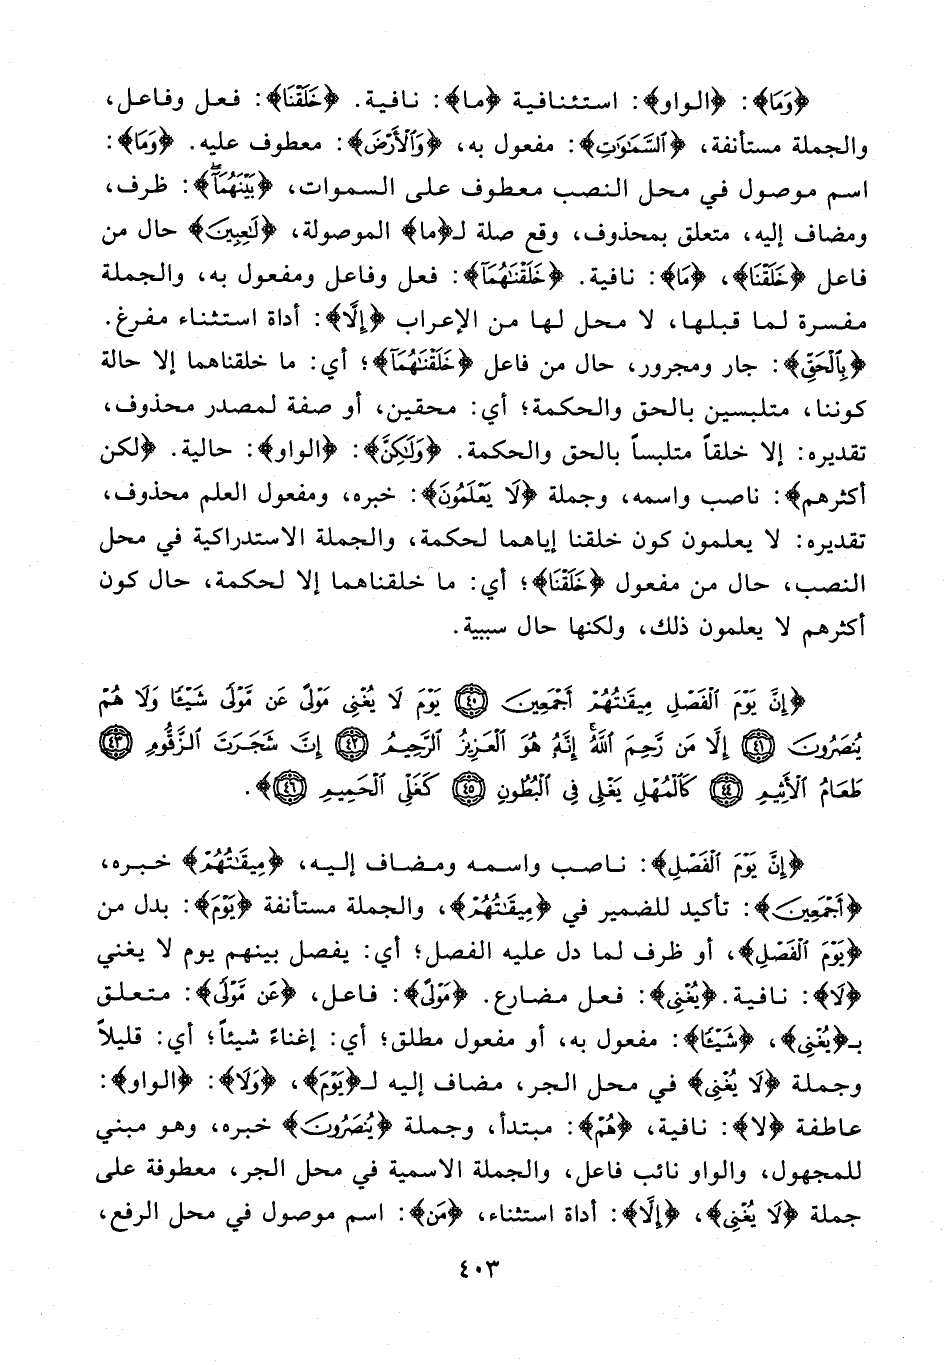 ﴿وَمَا﴾: ﴿الواو﴾: استئنافية ﴿ما﴾: نافية. ﴿خَلَقْنَا﴾: فعل وفاعل،
والجملة مستأنفة، ﴿السَّمَاوَاتِ﴾: مفعول به، ﴿وَالْأَرْضَ﴾: معطوف عليه. ﴿وَمَا﴾:
اسم موصول في محل النصب معطوف على السموات، ﴿بَيْنَهُمَا﴾: ظرف،
ومضاف إليه، متعلق بمحذوف، وقع صلة لـ﴿ما﴾ الموصولة، ﴿لَاعِبِينَ﴾ حال من
فاعل ﴿خَلَقْنَا﴾، ﴿مَا﴾: نافية. ﴿خَلَقْنَاهُمَا﴾: فعل وفاعل ومفعول به، والجملة
مفسرة لما قبلها، لا محل لها من الإعراب ﴿إِلَّا﴾: أداة استثناء مفرغ.
﴿بِالْحَقِّ﴾: جار ومجرور، حال من فاعل ﴿خَلَقْنَاهُمَا﴾؛ أي: ما خلقناهما إلا حالة
كوننا، متلبسين بالحق والحكمة؛ أي: محقين، أو صفة لمصدر محذوف،
تقديره: إلا خلقاً متلبساً بالحق والحكمة. ﴿وَلَكِنَّ﴾: ﴿الواو﴾: حالية. ﴿لكن
أكثرهم﴾: ناصب واسمه، وجملة ﴿لَا يَعْلَمُونَ﴾: خبره، ومفعول العلم محذوف،
تقديره: لا يعلمون كون خلقنا إياهما لحكمة، والجملة الاستدراكية في محل
النصب، حال من مفعول ﴿خَلَقْنَا﴾؛ أي: ما خلقناهما إلا لحكمة، حال كون
أكثرهم لا يعلمون ذلك، ولكنها حال سببية.
﴿إِنَّ يَوْمَ الْفَصْلِ مِيقَاتُهُمْ أَجْمَعِينَ ٤٠ يَوْمَ لَا يُغْنِي مَوْلًى عَن مَّوْلًى شَيْئًا وَلَا هُمْ
يُنصَرُونَ ٤١ إِلَّا مَن رَّحِمَ اللَّهُ إِنَّهُ هُوَ الْعَزِيزُ الرَّحِيمُ ٤٢ إِنَّ شَجَرَتَ الزَّقُّومِ ٤٣
طَعَامُ الْأَثِيمِ ٤٤ كَالْمُهْلِ يَغْلِي فِي الْبُطُونِ ٤٥ كَغَلْيِ الْحَمِيمِ ٤٦﴾.
﴿إِنَّ يَوْمَ الْفَصْلِ﴾: ناصب واسمه ومضاف إليه، ﴿مِيقَاتُهُمْ﴾ خبره،
﴿أَجْمَعِينَ﴾: تأكيد للضمير في ﴿مِيقَاتُهُمْ﴾، والجملة مستأنفة ﴿يَوْمَ﴾: بدل من
﴿يَوْمَ الْفَصْلِ﴾، أو ظرف لما دل عليه الفصل؛ أي: يفصل بينهم يوم لا يغني
﴿لَا﴾: نافية. ﴿يُغْنِي﴾: فعل مضارع. ﴿مَوْلًى﴾: فاعل، ﴿عَن مَّوْلًى﴾: متعلق
بـ﴿يُغْنِي﴾، ﴿شَيْئًا﴾: مفعول به، أو مفعول مطلق؛ أي: إغناءً شيئاً؛ أي: قليلاً
وجملة ﴿لَا يُغْنِي﴾ في محل الجر، مضاف إليه لـ﴿يَوْمَ﴾، ﴿وَلَا﴾: ﴿الواو﴾:
عاطفة ﴿لا﴾: نافية، ﴿هُمْ﴾: مبتدأ، وجملة ﴿يُنصَرُونَ﴾ خبره، وهو مبني
للمجهول، والواو نائب فاعل، والجملة الاسمية في محل الجر، معطوفة على
جملة ﴿لَا يُغْنِي﴾، ﴿إِلَّا﴾: أداة استثناء، ﴿مَن﴾: اسم موصول في محل الرفع،
٤٠٣